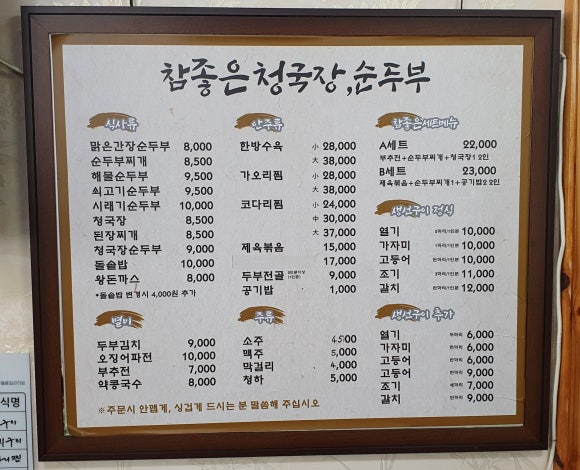 참좋은 청국장, 순두부
식사류
맑은간장순두부 8,000
순두부찌개 8,500
해물순두부 9,500
쇠고기순두부 9,500
시래기순두부 10,000
청국장 8,500
된장찌개 8,500
청국장순두부 9,000
돌솥밥 10,000
왕돈까스 8,000
*돌솥밥 변경시 4,000원 추가
별미
두부김치 9,000
오징어파전 10,000
부추전 7,000
약콩국수 8,000
안주류
한방수육 小 28,000
大 38,000
가오리찜 小 28,000
大 38,000
코다리찜 小 24,000
中 30,000
大 37,000
제육볶음 15,000
17,000
두부전골 9,000
공기밥 1,000
주류
소주 4,500
맥주 5,000
막걸리 4,000
청하 5,000
참좋은세트메뉴
A세트 22,000
부추전+순두부찌개+청국장1 2인
B세트 23,000
제육볶음+순두부1+공기밥2 2인
생선구이 정식
열기 10,000
가자미 10,000
고등어 10,000
조기 11,000
갈치 12,000
생선구이 추가
열기 6,000
가자미 6,000
고등어 6,000
고등어 9,000
조기 7,000
갈치 9,000
※주문시 안맵게, 싱겁게 드시는 분 말씀해 주십시오
식명
구이